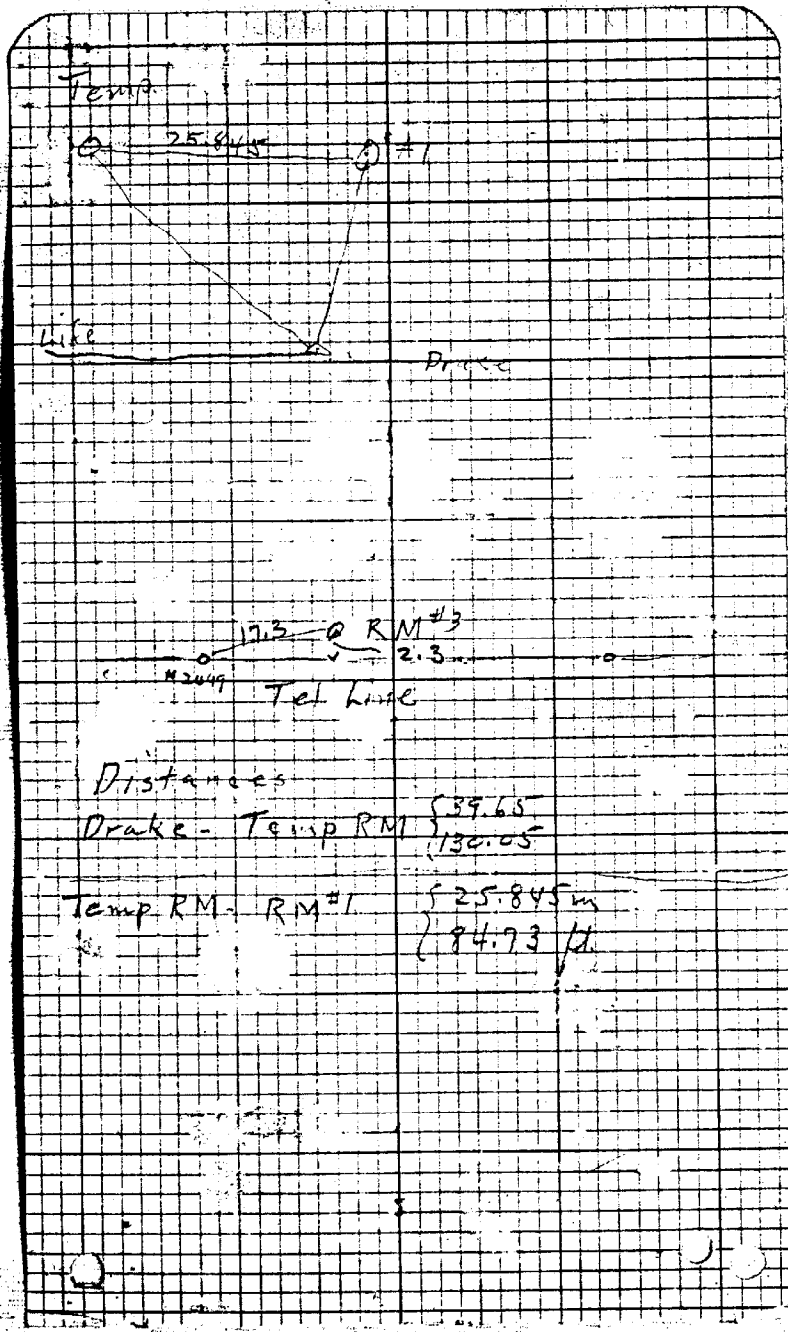 Temp
25.845 #1
Drake
17.3 RM #3
2.3
Tel Line
Distances
Drake - Temp RM { 39.65
130.05
Temp RM - RM #1 { 25.845 m
84.793 ft.